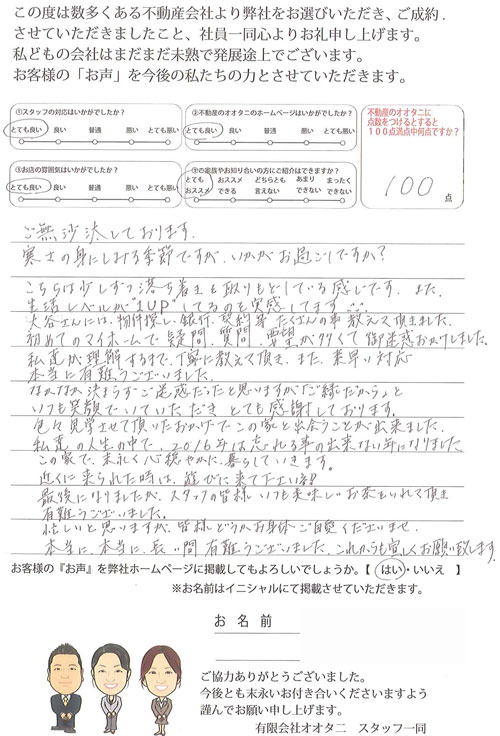 この度は数多くある不動産会社より弊社をお選びいただき、ご成約
させていただきましたこと、社員一同心よりお礼申し上げます。
私どもの会社はまだまだ未熟で発展途上でございます。
お客様の「お声」を今後の私たちの力とさせていただきます。
①スタッフの対応はいかがでしたか？
とても良い 良い 普通 悪い とても悪い
②不動産のオオタニのホームページはいかがでしたか？
とても良い 良い 普通 悪い とても悪い
③お店の雰囲気はいかがでしたか？
とても良い 良い 普通 悪い とても悪い
④ご家族やお知り合いの方にご紹介はできますか？
とても オススメ どちらとも あまり まったく
おススメ できる 言えない できない できない
不動産のオオタニに
点数をつけるとすると
１００点満点中何点ですか？
100 点
ご無沙汰しております。
寒さの身にしみる季節ですが、いかがお過ごしですか？
こちらは少しずつ落ち着きを取りもどしている感じです。また、
生活レベルが"1UP"してるのを実感してます
大谷さんには、物件探し、銀行、契約等 たくさんの事 教えて頂きました。
初めてのマイホームで、疑問、質問、要望が多くて御迷惑おかけしました。
私達が理解するまで、丁寧に教えて頂き、また、素早い対応
本当に有難うございました。
なかなか決まらずご迷惑だったと思いますが「ご縁だから」と
いつも笑顔でいていただき とても感謝しております。
色々見学させて頂いたおかげで この家と出会うことが出来ました。
私達の人生の中で、2016年は忘れる事の出来ない年になりました
この家で、末永く心穏やかに暮らしていきます。
近くに来られた時は、遊びに来て下さいネ
最後になりましたが、スタッフの皆様 いつも美味しいお茶をいれて頂き
有難うございました。
忙しいと思いますが、皆様どうかお身体ご自愛くださいませ。
本当に、本当に、長い間 有難うございました。これからも宜しくお願い致します
お客様の『お声』を弊社ホームページに掲載してもよろしいでしょうか。【 はい・いいえ 】
※お名前はイニシャルにて掲載させていただきます。
お 名 前
ご協力ありがとうございました。
今後とも末永いお付き合いくださいますよう
謹んでお願い申し上げます。
有限会社オオタニ スタッフ一同